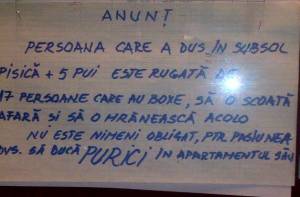 ANUNȚ
PERSOANA CARE A DUS ÎN SUBSOL
PISICĂ + 5 PUI ESTE RUGATĂ DE
17 PERSOANE CARE AU BOXE, SĂ O SCOATĂ
AFARĂ ȘI SĂ O HRĂNEASCĂ ACOLO
NU ESTE NIMENI OBLIGAT, PTR. PASIUNEA
DVS. SĂ DUCĂ PURICI ÎN APARTAMENTUL SĂU